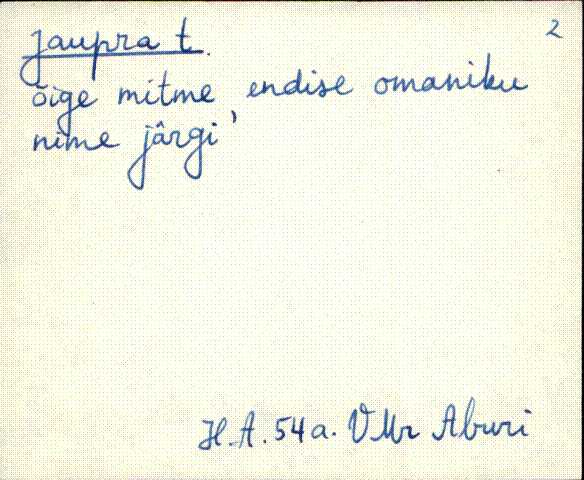 Jaupra t. 2
õige mitme endise omaniku
nime järgi'
H.A. 54a. VMr Aburi